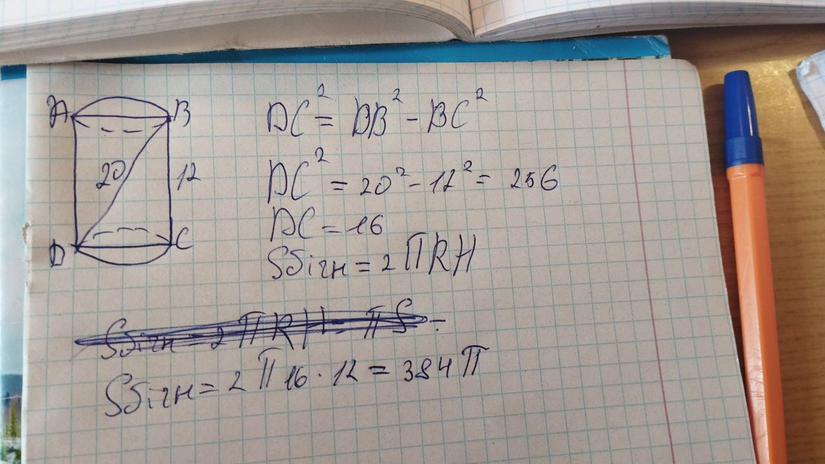 A B
20 12
D C
DC² = DB² - BC²
DC² = 20² - 12² = 256
DC = 16
Sбічн = 2πRH
Sбічн = 2π16·12 = 384π